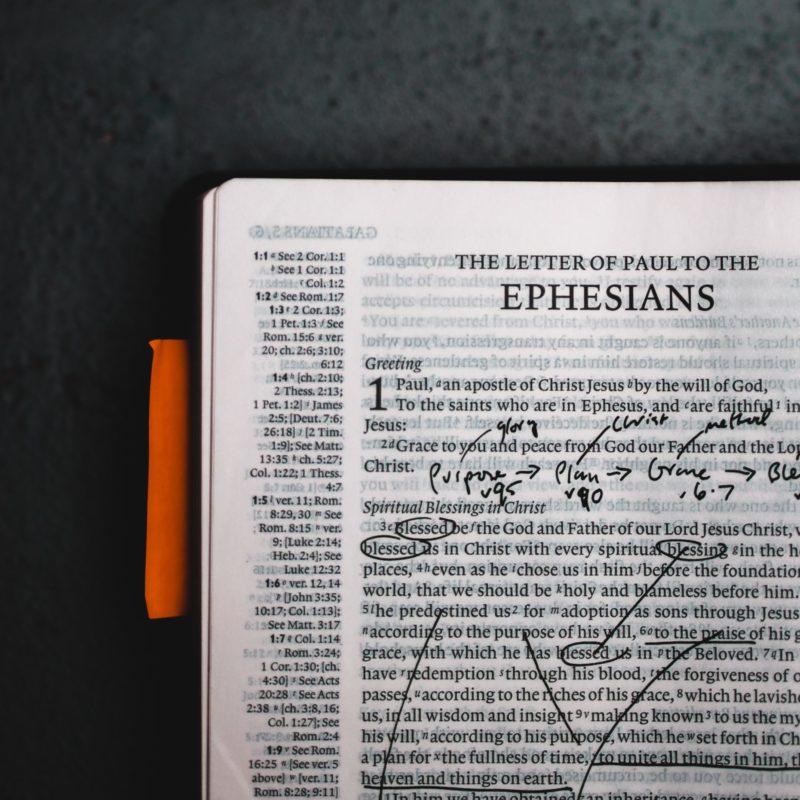 GALATIANS 5, 6
1:1 a See 2 Cor. 1:1
b See 1 Cor. 1:1
c Col. 1:2
1:2 d See Rom. 1:7
1:3 e 2 Cor. 1:3;
1 Pet. 1:3 f See
Rom. 15:6 g ver.
20; ch. 2:6; 3:10;
6:12
1:4 h [ch. 2:10;
2 Thess. 2:13;
1 Pet. 1:2] i James
2:5; [Deut. 7:6;
26:18] j [2 Tim.
1:9]; See Matt.
13:35 k ch. 5:27;
Col. 1:22; 1 Thess.
4:7
1:5 l ver. 11; Rom.
8:29, 30 m See
Rom. 8:15 n ver.
9; [Luke 2:14;
Heb. 2:4]; See
Luke 12:32
1:6 o ver. 12, 14
p [John 3:35;
10:17; Col. 1:13];
See Matt. 3:17
1:7 q Col. 1:14
r Rom. 3:24;
1 Cor. 1:30; [ch.
4:30] s See Acts
20:28 t See Acts
2:38 u [ch. 3:8, 16;
Col. 1:27]; See
Rom. 2:4
1:9 v See Rom.
16:25 n [See ver. 5
above] w [ver. 11;
Rom. 8:28; 9:11]
THE LETTER OF PAUL TO THE
EPHESIANS
Greeting
1 Paul, a an apostle of Christ Jesus b by the will of God,
To the saints who are in Ephesus, and c are faithful 1 in
Jesus:
glory Christ method
2 d Grace to you and peace from God our Father and the Lor
Christ.
Purpose → Plan → Grace → Ble
v95 v90 .6.7
Spiritual Blessings in Christ
3 e Blessed be f the God and Father of our Lord Jesus Christ,
blessed us in Christ with every spiritual blessing g in the
places, 4 h even as he i chose us in him j before the foundation
world, that we should be k holy and blameless before him.
5 l he predestined us 2 for m adoption as sons through Jesus
n according to the purpose of his will, 6 o to the praise of his g
grace, with which he has blessed us in p the Beloved. 7 q In
have r redemption s through his blood, t the forgiveness of o
passes, u according to the riches of his grace, 8 which he lavishe
us, in all wisdom and insight 9 v making known 3 to us the my
his will, n according to his purpose, which he w set forth in Ch
a plan for x the fullness of time, y to unite all things in him, th
heaven and things on earth.
11 In him we have obtained z an inheritance, having been